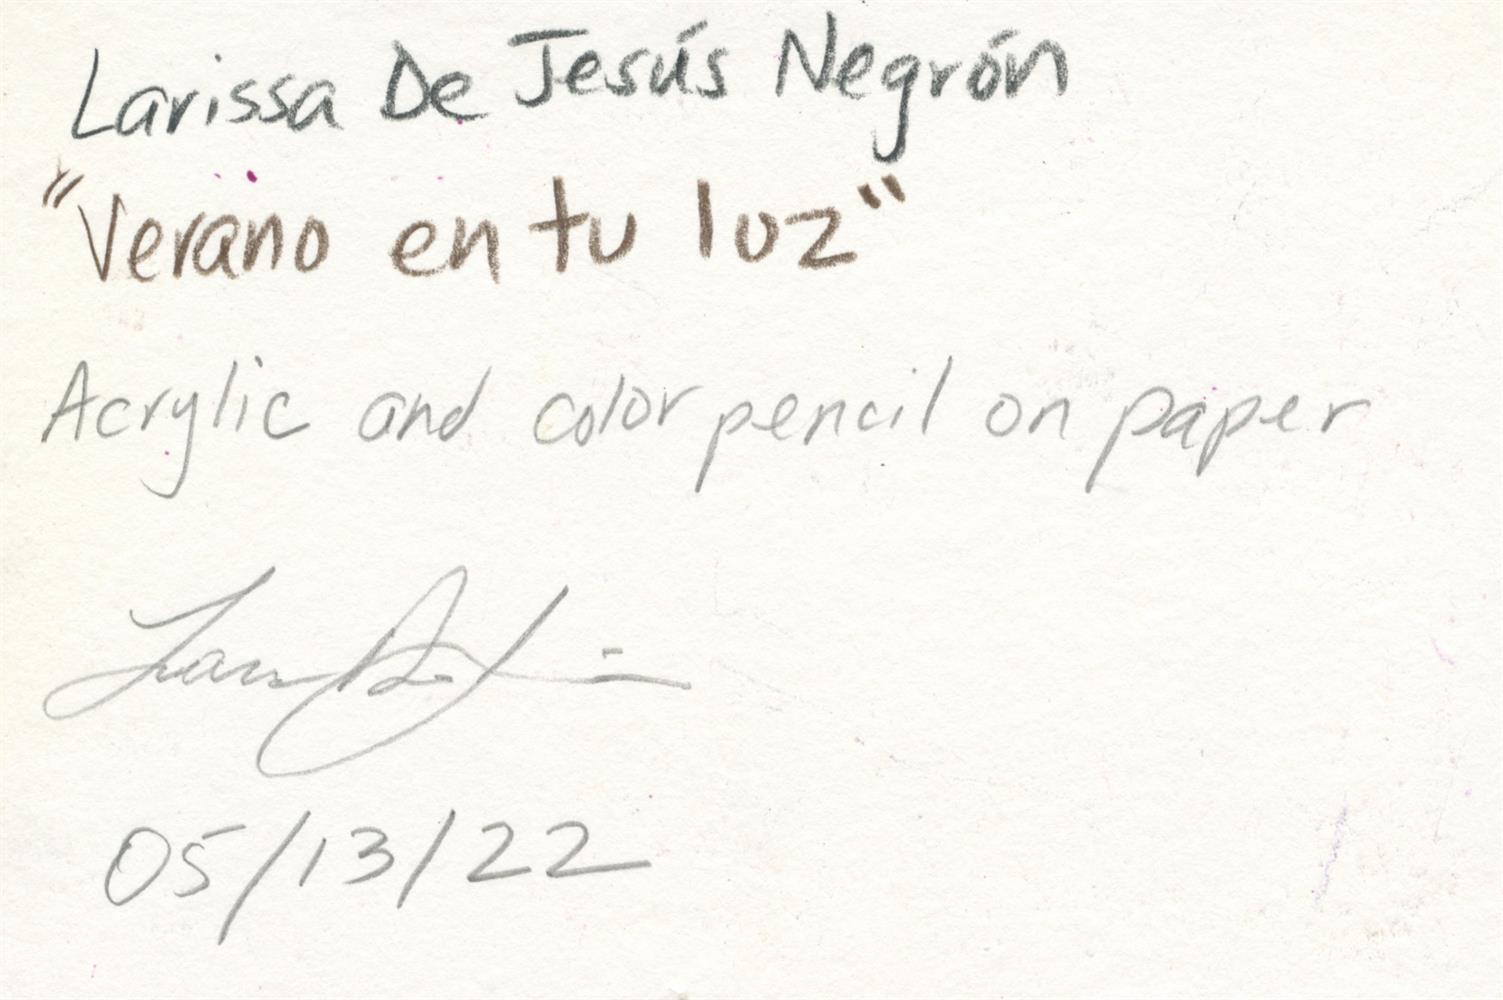 Larissa De Jesús Negrón
"Verano en tu luz"
Acrylic and color pencil on paper
05/13/22